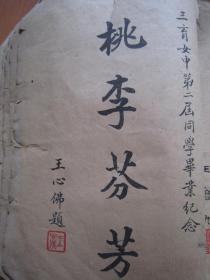 三育女中第二屆同學畢業紀念
桃李芬芳
王心佛題